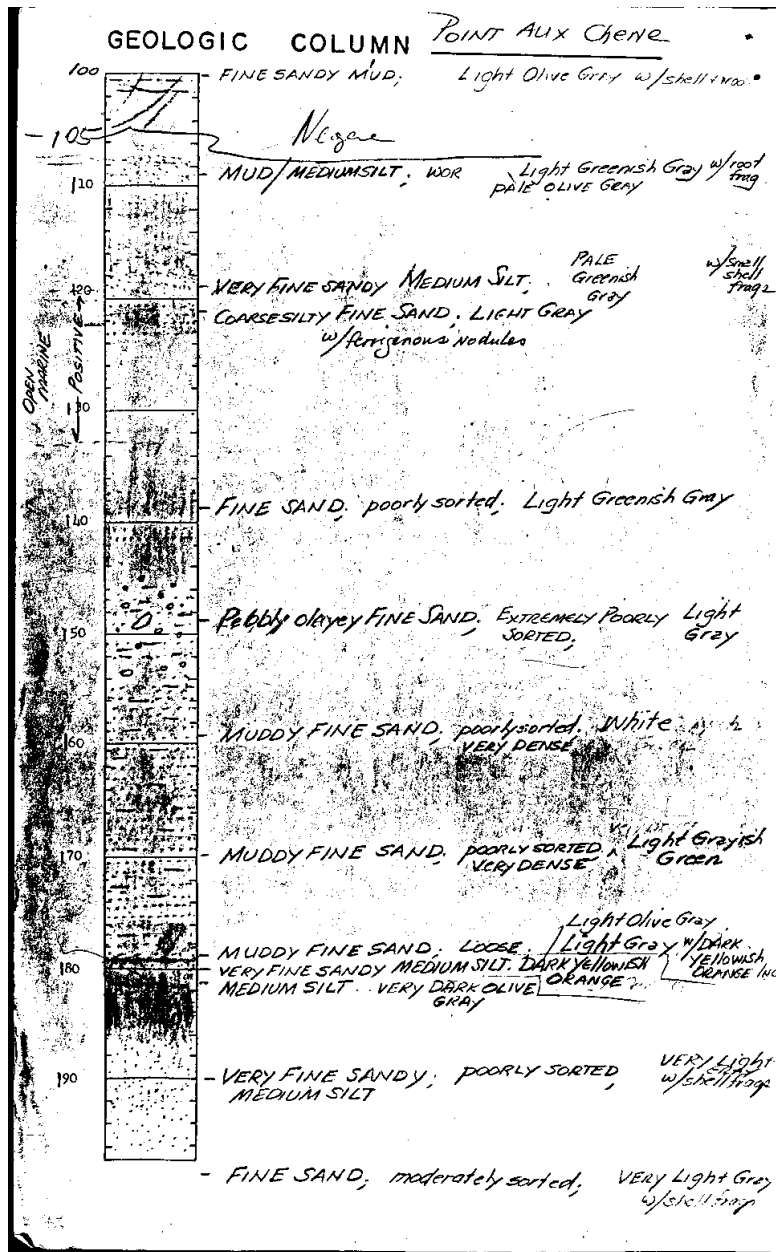 GEOLOGIC COLUMN Point Aux Chene
100 - FINE SANDY MUD; Light Olive Gray w/shell +
-105
MUD/MEDIUM SILT; WOR Light Greenish Gray w/root frag
PALE OLIVE GRAY
110
VERY FINE SANDY MEDIUM SILT. PALE Greenish Gray w/small shell frags
120
COARSE SILTY FINE SAND; LIGHT GRAY
w/ferrigenous Nodules
OPEN MARINE
POSITIVE
130
FINE SAND; poorly sorted; Light Greenish Gray
140
Pebbly clayey FINE SAND; EXTREMELY POORLY SORTED; Light Gray
150
MUDDY FINE SAND; poorly sorted. White
VERY DENSE
160
MUDDY FINE SAND; POORLY SORTED Light Grayish Green
VERY DENSE
170
Light Olive Gray
MUDDY FINE SAND; LOOSE. Light Gray w/DARK YELLOWISH ORANGE
180 VERY FINE SANDY MEDIUM SILT. DARK YELLOWISH ORANGE
MEDIUM SILT. VERY DARK OLIVE GRAY
190 - VERY FINE SANDY; POORLY SORTED, VERY Light
MEDIUM SILT w/shell frags
- FINE SAND; moderately sorted; VERY Light Gray
w/shell frags